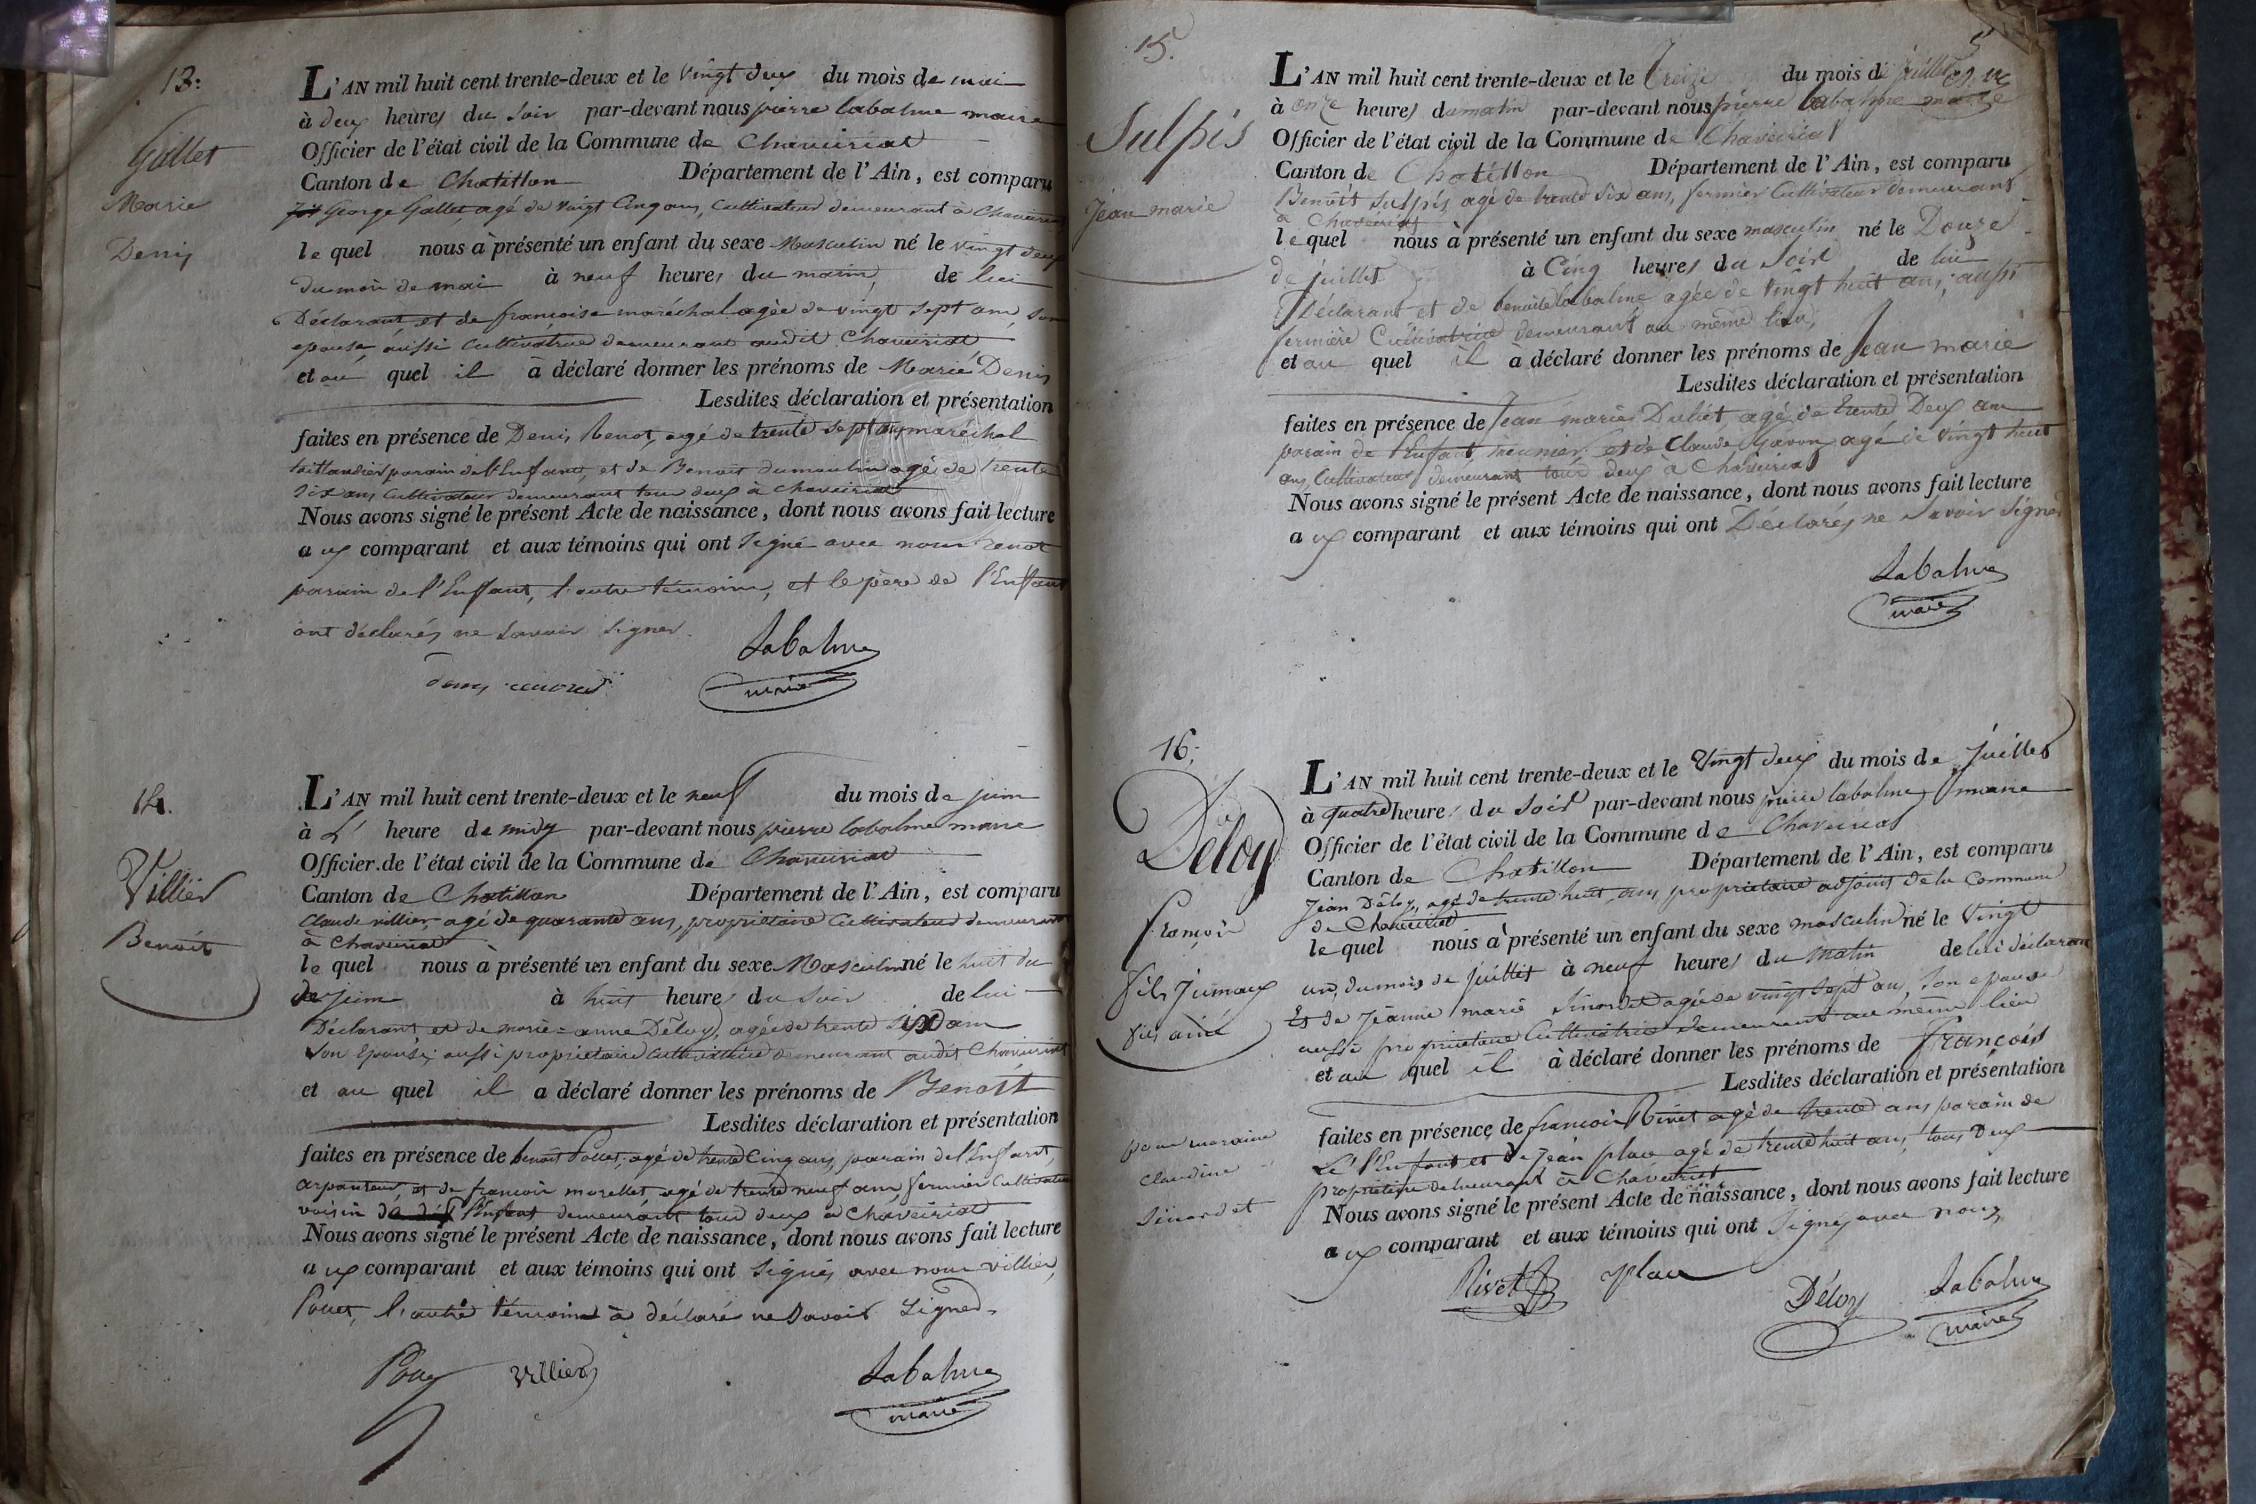 13:
Gallet
Marie
Denis
L'AN mil huit cent trente-deux et le vingt deux du mois de mai
à deux heures du soir par-devant nous pierre labalme maire
Officier de l'état civil de la Commune de Chaveiriat
Canton de Chatillon Département de l'Ain, est comparu
George Gallet, agé de vingt Cinq ans, Cultivateur demeurant à Chaveiriat
le quel nous à présenté un enfant du sexe Masculin né le vingt deux
du mois de mai à neuf heures du matin, de lui
Déclarant et de françoise maréchal agée de vingt sept ans, son
epouse, aussi Cultivatrice demeurant audit Chaveiriat
et au quel il à déclaré donner les prénoms de Marie Denis
Lesdites déclaration et présentation
faites en présence de Denis Renot, agé de trente sept ans maréchal
taillandier parain de l'Enfant, et de Benoit dumoulin agé de trente
six ans Cultivateur demeurant tous deux à Chaveiriat
Nous avons signé le présent Acte de naissance, dont nous avons fait lecture
aux comparant et aux témoins qui ont Signé avec nous Renot
parain de l'Enffant, l'autre témoins, et le père de l'Enffant
ont déclarés ne Savoir Signer.
Labalme
maire
14.
Villier
Benoit
L'AN mil huit cent trente-deux et le neuf du mois de juin
à L' heure de midy par-devant nous pierre labalme maire
Officier de l'état civil de la Commune de Chaveiriat
Canton de Chatillon Département de l'Ain, est comparu
Claude villier, agé de quarante ans, propriétaire Cultivateur demeurant
à Chaveiriat
le quel nous à présenté un enfant du sexe Masculin né le huit du
de juin à huit heures du Soir de lui
Déclarant et de marie-anne Déloy, agée de trente Six ans
Son Epouse, aussi propriétaire Cultivatrice demeurant audit Chaveiriat
et au quel il a déclaré donner les prénoms de Benoît
Lesdites déclaration et présentation
faites en présence de benoit Pouet, agé de trente Cinq ans, parain de l'Enfant,
arpanteur, et de francoir morellet, agé de trente neuf ans, fermier Cultivateur
voisin de l'Enfant demeurant tous deux à Chaveiriat
Nous avons signé le présent Acte de naissance, dont nous avons fait lecture
aux comparant et aux témoins qui ont Signés avec nous villier,
Pouet, l'autre témoins à déclarés ne Savoir Signer.
Villier
Labalme
maire
15.
5
Sulpis
Jean marie
L'AN mil huit cent trente-deux et le treize du mois de juillet
à onze heures du matin par-devant nous pierre labalme maire
Officier de l'état civil de la Commune de Chaveiriat
Canton de Chatillon Département de l'Ain, est comparu
Benoit Sulpis agé de trente Six ans, fermier Cultivateur demeurant
à Chaveiriat
le quel nous à présenté un enfant du sexe masculin né le Douze
de juillet à Cinq heures du Soir de lui
Déclarant et de benoite labalme agée de vingt huit ans, aussi
fermière Cultivatrice demeurant au même lieu,
et au quel il à déclaré donner les prénoms de Jean marie
Lesdites déclaration et présentation
faites en présence de Jean marie Duliet, agé de trente Deux ans
parain de l'Enfant, meunier, et de Claude Gavon, agé de vingt huit
ans, Cultivateur demeurant tous deux à Chaveiriat
Nous avons signé le présent Acte de naissance, dont nous avons fait lecture
aux comparant et aux témoins qui ont Déclarés ne Savoir Signer
Labalme
maire
16:
Déloy
françois
fils Jumaux
fils ainé
par maraine
Claudine
Sinardet
L'AN mil huit cent trente-deux et le Vingt deux du mois de Juillet
à quatre heures du Soir par-devant nous pierre labalme, maire
Officier de l'état civil de la Commune de Chaveiriat
Canton de Chatillon Département de l'Ain, est comparu
Jean Déloy, agé de trente huit ans, propriétaire adjoint de la Commune
de Chaveiriat
le quel nous à présenté un enfant du sexe masculin né le Vingt
un, du mois de juillet à neuf heures du Matin de lui déclarant
Et de Jeanne marie Sinardet agée de vingt Sept ans, Son epouse
aussi propriétaire Cultivatrice demeurant au même lieu
et au quel il à déclaré donner les prénoms de François
Lesdites déclaration et présentation
faites en présence de francoir Rivet agé de trente ans parain de
Le l'Enfant et de jean plau agé de trente huit ans, tous Deux
propriétaire demeurant à Chaveiriat
Nous avons signé le présent Acte de naissance, dont nous avons fait lecture
aux comparant et aux témoins qui ont Signés avec nous,
Rivet plau
Déloy Labalme
maire